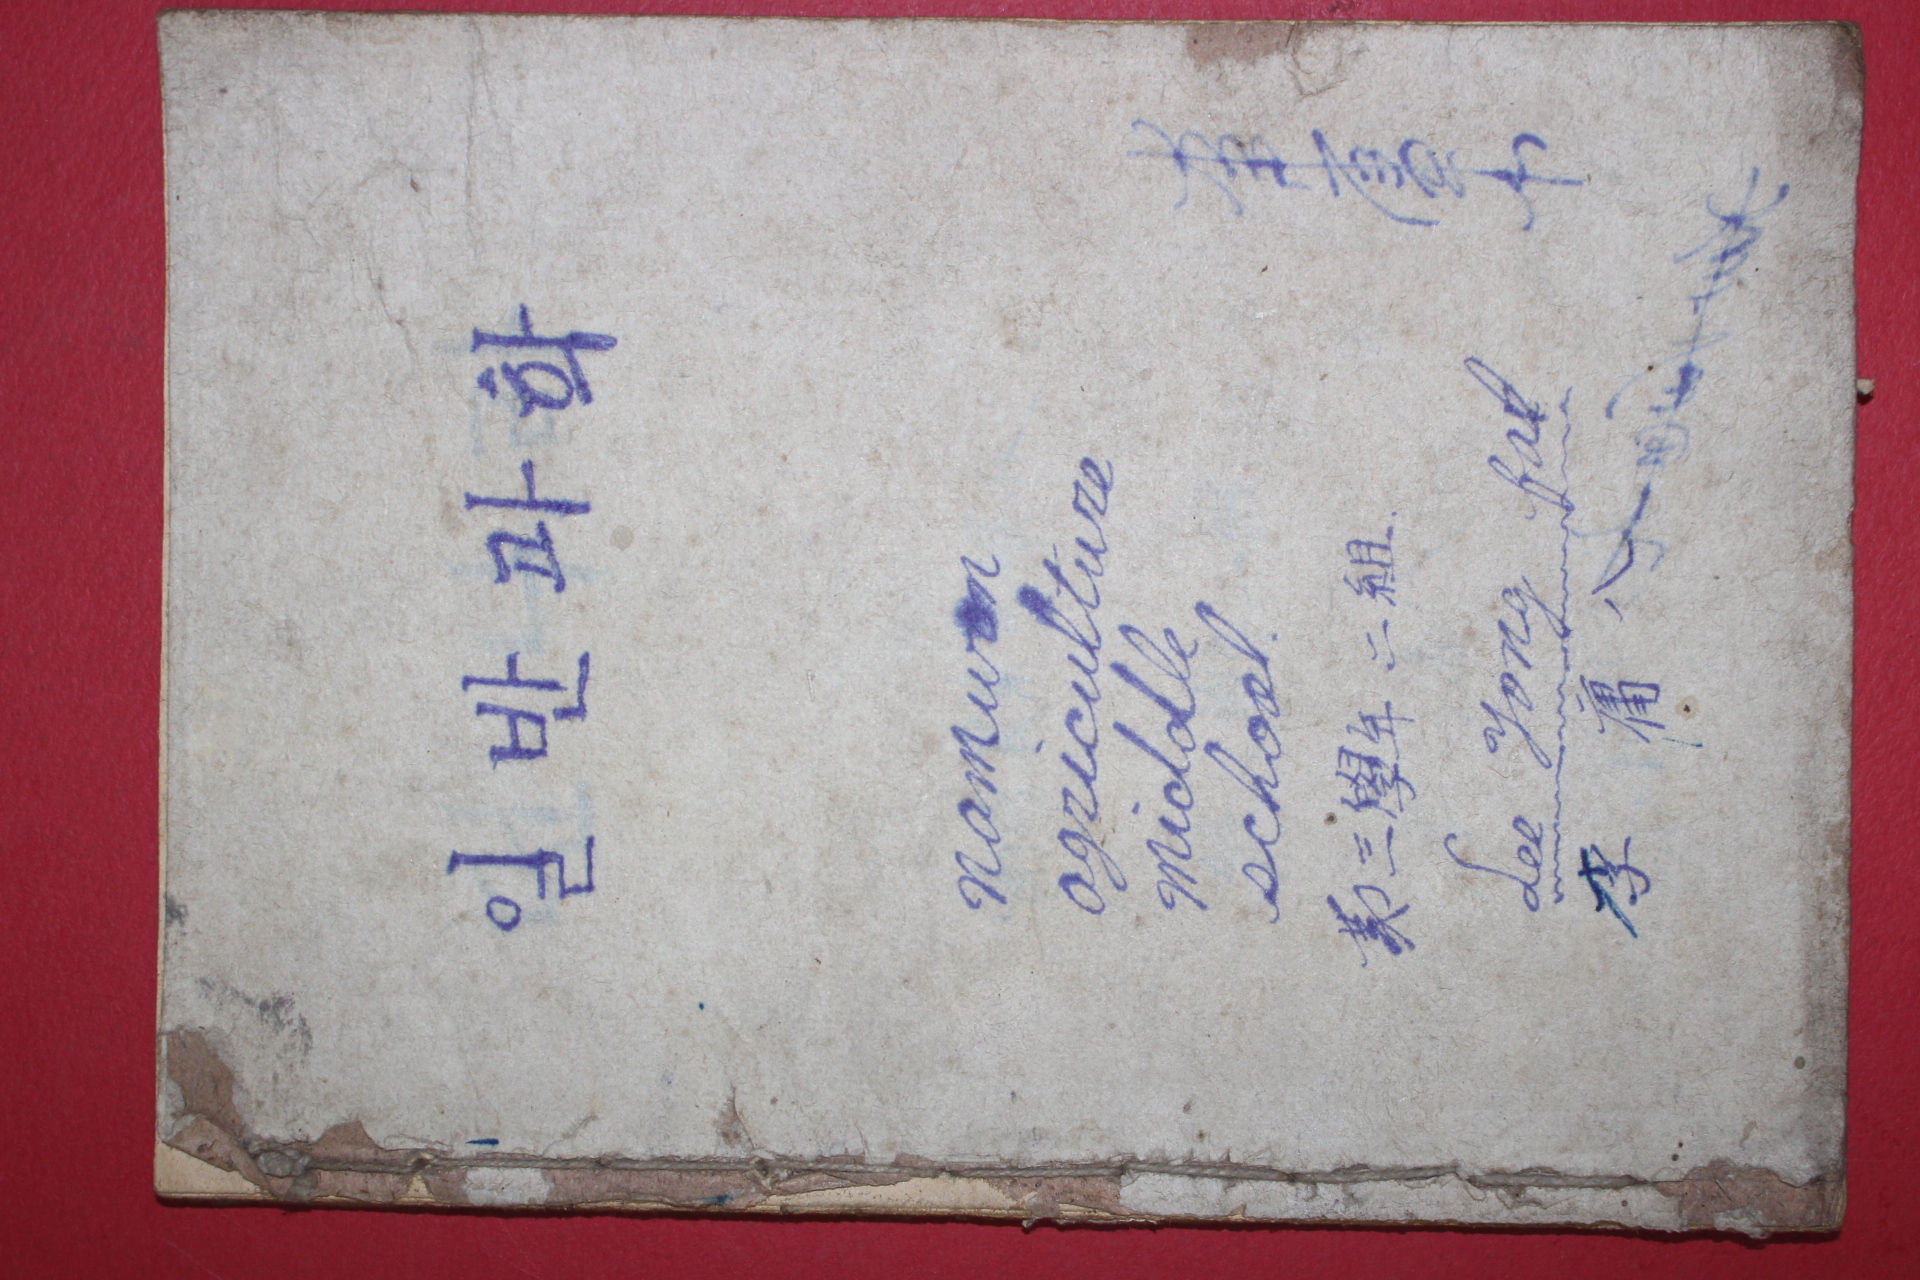 일반과학
Namwon
agriculture
middle
school.
第三學年 二組.
Lee Yong
李 庸 八